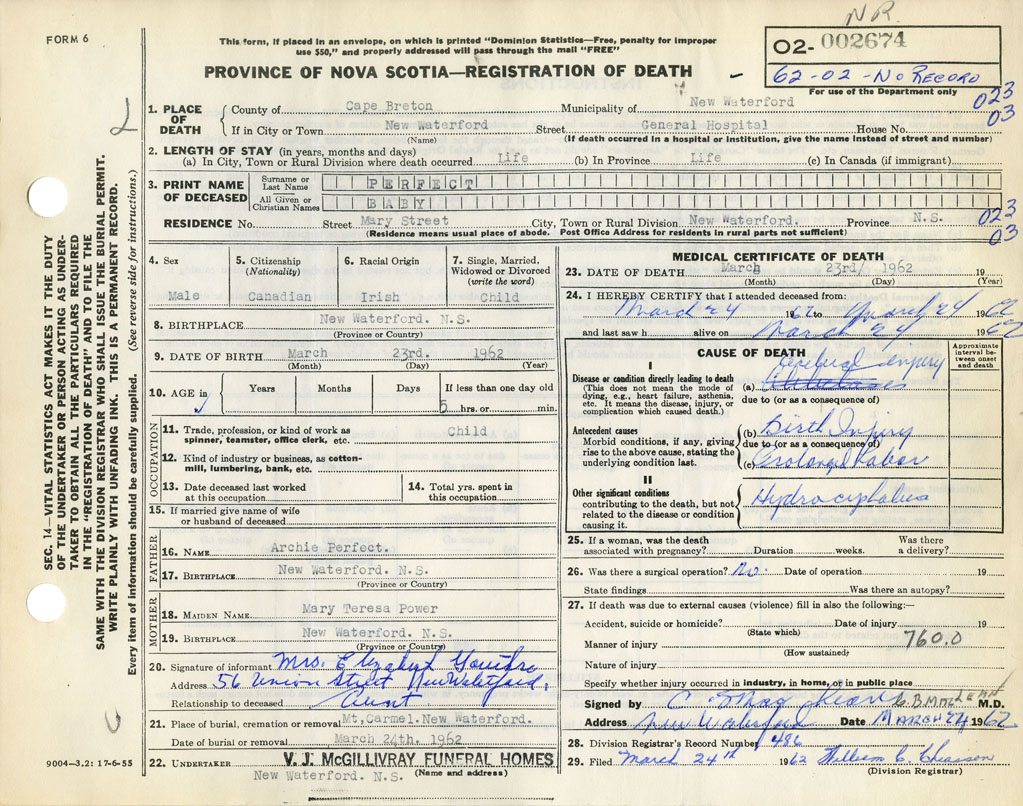 N.R.
FORM 6
This form, if placed in an envelope, on which is printed "Dominion Statistics—Free, penalty for improper
use $50," and properly addressed will pass through the mail "FREE"
02-002674
62-02-No Record
For use of the Department only
PROVINCE OF NOVA SCOTIA—REGISTRATION OF DEATH
023
03
1. PLACE OF DEATH
County of Cape Breton Municipality of New Waterford
If in City or Town New Waterford Street General Hospital House No.
(Name) (If death occurred in a hospital or institution, give the name instead of street and number)
2. LENGTH OF STAY (in years, months and days)
(a) In City, Town or Rural Division where death occurred Life (b) In Province Life (c) In Canada (if immigrant)
3. PRINT NAME OF DECEASED
Surname or Last Name PERFECT
All Given or Christian Names BABY
RESIDENCE No. Street Mary Street City, Town or Rural Division New Waterford. Province N.S.
(Residence means usual place of abode. Post Office Address for residents in rural parts not sufficient)
023
03
4. Sex
Male
5. Citizenship
(Nationality)
Canadian
6. Racial Origin
Irish
7. Single, Married,
Widowed or Divorced
(write the word)
Child
8. BIRTHPLACE New Waterford. N.S.
(Province or Country)
9. DATE OF BIRTH March 23rd. 1962
(Month) (Day) (Year)
10. AGE in
Years Months Days If less than one day old
5 hrs. or min.
OCCUPATION
11. Trade, profession, or kind of work as
spinner, teamster, office clerk, etc. Child
12. Kind of industry or business, as cotton-
mill, lumbering, bank, etc.
13. Date deceased last worked
at this occupation
14. Total yrs. spent in
this occupation
15. If married give name of wife
or husband of deceased
FATHER
16. NAME Archie Perfect.
17. BIRTHPLACE New Waterford. N.S.
(Province or Country)
MOTHER
18. MAIDEN NAME Mary Teresa Power
19. BIRTHPLACE New Waterford. N.S.
(Province or Country)
20. Signature of informant Mrs. Elizabeth
Address 56 Union Street New Waterford,
Relationship to deceased Aunt
21. Place of burial, cremation or removal Mt, Carmel. New Waterford.
Date of burial or removal March 24th. 1962
22. UNDERTAKER V. J. McGILLIVRAY FUNERAL HOMES
New Waterford. N.S. (Name and address)
MEDICAL CERTIFICATE OF DEATH
23. DATE OF DEATH March 23rd/ 1962 19
(Month) (Day) (Year)
24. I HEREBY CERTIFY that I attended deceased from:
March 24 1962 to March 24 1962
and last saw h alive on March 24 1962
CAUSE OF DEATH
Approximate interval between onset and death
I
Disease or condition directly leading to death
(This does not mean the mode of
dying, e.g., heart failure, asthenia,
etc. It means the disease, injury, or
complication which caused death.)
(a) Cerebral injury
due to (or as a consequence of)
Antecedent causes
Morbid conditions, if any, giving
rise to the above cause, stating the
underlying condition last.
(b) Birth Injury
due to (or as a consequence of)
(c) Prolonged Labor
II
Other significant conditions
contributing to the death, but not
related to the disease or condition
causing it.
Hydrocephalus
25. If a woman, was the death
associated with pregnancy? Duration weeks. Was there
a delivery?
26. Was there a surgical operation? No. Date of operation 19
State findings Was there an autopsy?
27. If death was due to external causes (violence) fill in also the following:—
Accident, suicide or homicide? Date of injury 19
(State which)
Manner of injury 760.0
(How sustained)
Nature of injury
Specify whether injury occurred in industry, in home, or in public place
Signed by M.D.
Address New Waterford Date MARCH 24 1962
28. Division Registrar's Record Number 486
29. Filed March 24th 1962 William C. Chiasson
(Division Registrar)
SEC. 14—VITAL STATISTICS ACT MAKES IT THE DUTY
OF THE UNDERTAKER OR PERSON ACTING AS UNDER-
TAKER TO OBTAIN ALL THE PARTICULARS REQUIRED
IN THE "REGISTRATION OF DEATH" AND TO FILE THE
SAME WITH THE DIVISION REGISTRAR WHO SHALL ISSUE THE BURIAL PERMIT.
WRITE PLAINLY WITH UNFADING INK. THIS IS A PERMANENT RECORD.
Every item of information should be carefully supplied. (See reverse side for instructions.)
9004—3.2: 17-6-55